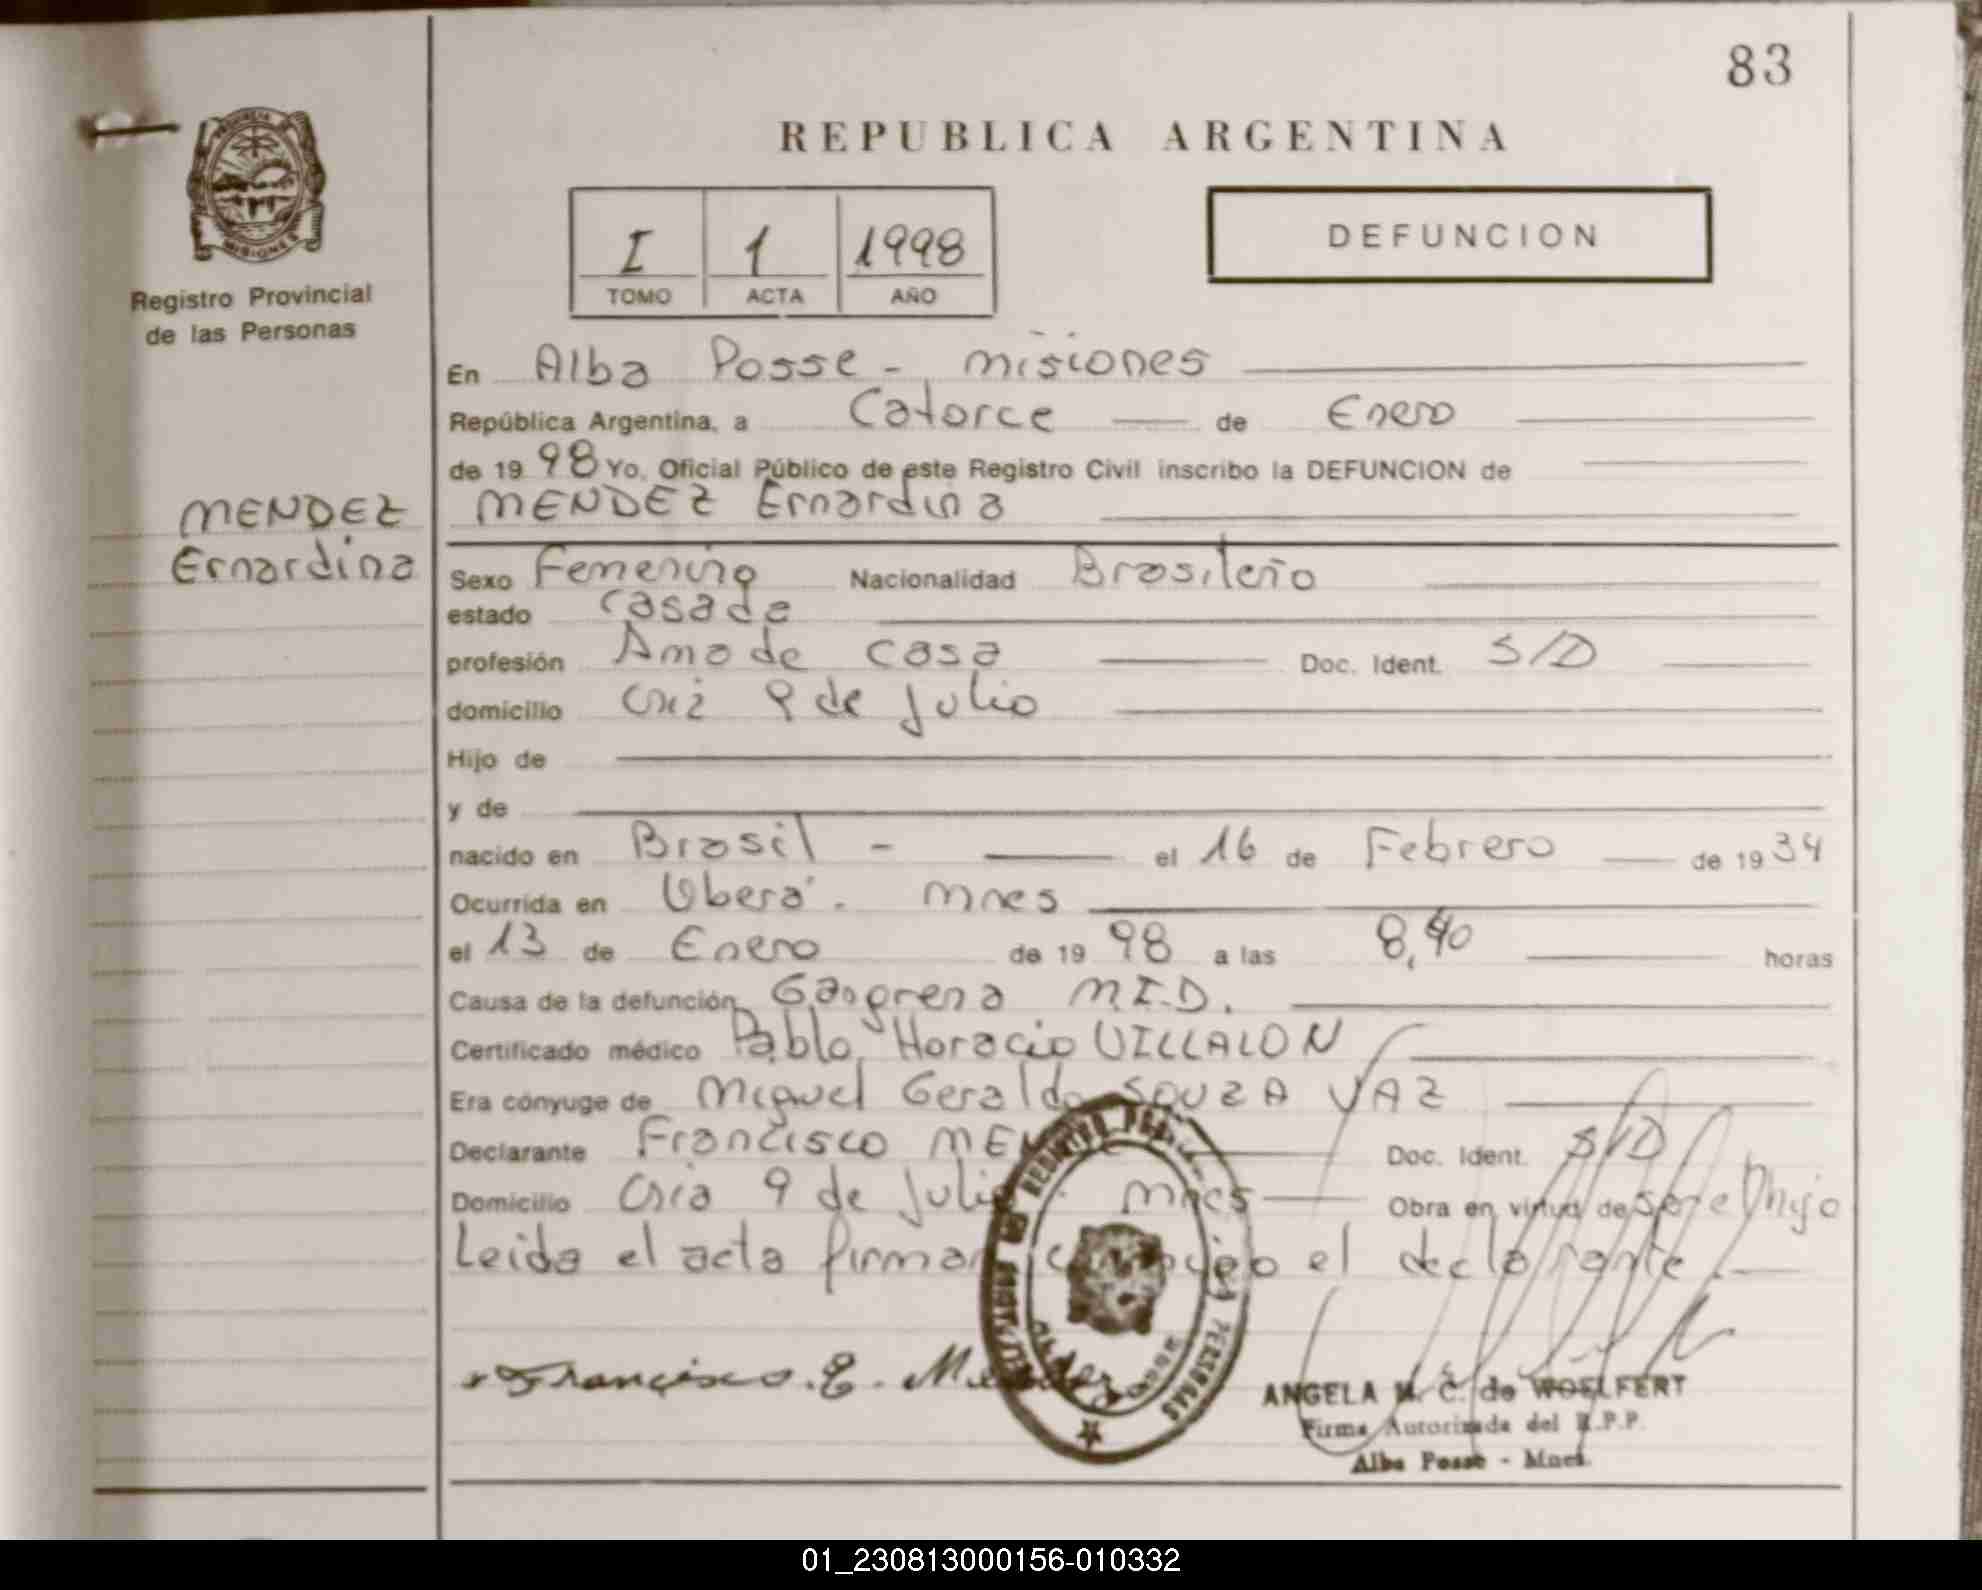 83
REPUBLICA ARGENTINA
PROVINCIA DE MISIONES
Registro Provincial
de las Personas
I 1 1998
TOMO ACTA AÑO
DEFUNCION
En Alba Posse - Misiones
República Argentina, a Catorce de Enero
de 19 98 Yo, Oficial Público de este Registro Civil inscribo la DEFUNCION de
MENDEZ Ernardina
MENDEZ
Ernardina
Sexo Femenino Nacionalidad Brasileño
estado Casada
profesión Ama de casa Doc. Ident. S/D
domicilio 9 de Julio
Hijo de
y de
nacido en Brasil - el 16 de Febrero de 19 34
Ocurrida en Oberá. Mnes
el 13 de Enero de 19 98 a las 8,40 horas
Causa de la defunción Gangrena M.I.D.
Certificado médico Pablo Horacio VILLALON
Era cónyuge de Miguel Geraldo SOUZA VAZ
Declarante Francisco Doc. Ident. S/D
Domicilio 9 de Julio. Mnes Obra en virtud de ser el hijo
Leida el acta firman conmigo el declarante.
Francisco. E. Mendez
ANGELA M. C. de WOELFERT
Firma Autorizada del R.P.P.
Alba Posse - Mnes.
01_230813000156-010332